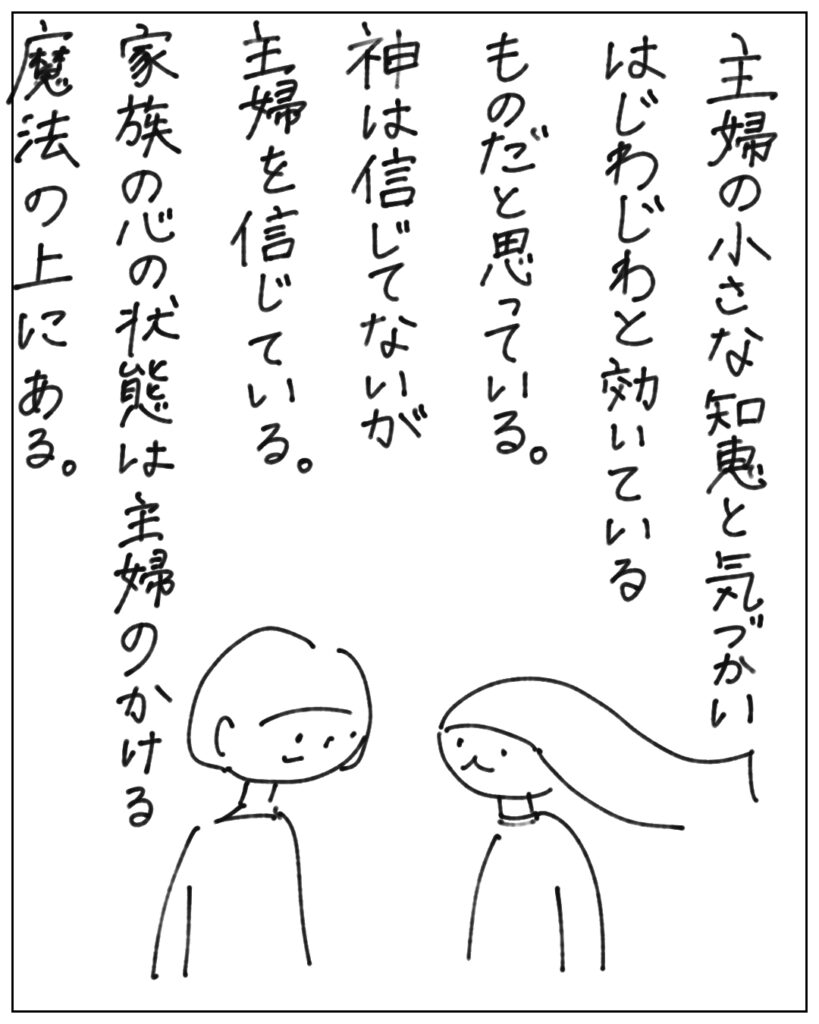 主婦の小さな知恵と気づかい
はじわじわと効いている
ものだと思っている。
神は信じてないが
主婦を信じている。
家族の心の状態は主婦のかける
魔法の上にある。